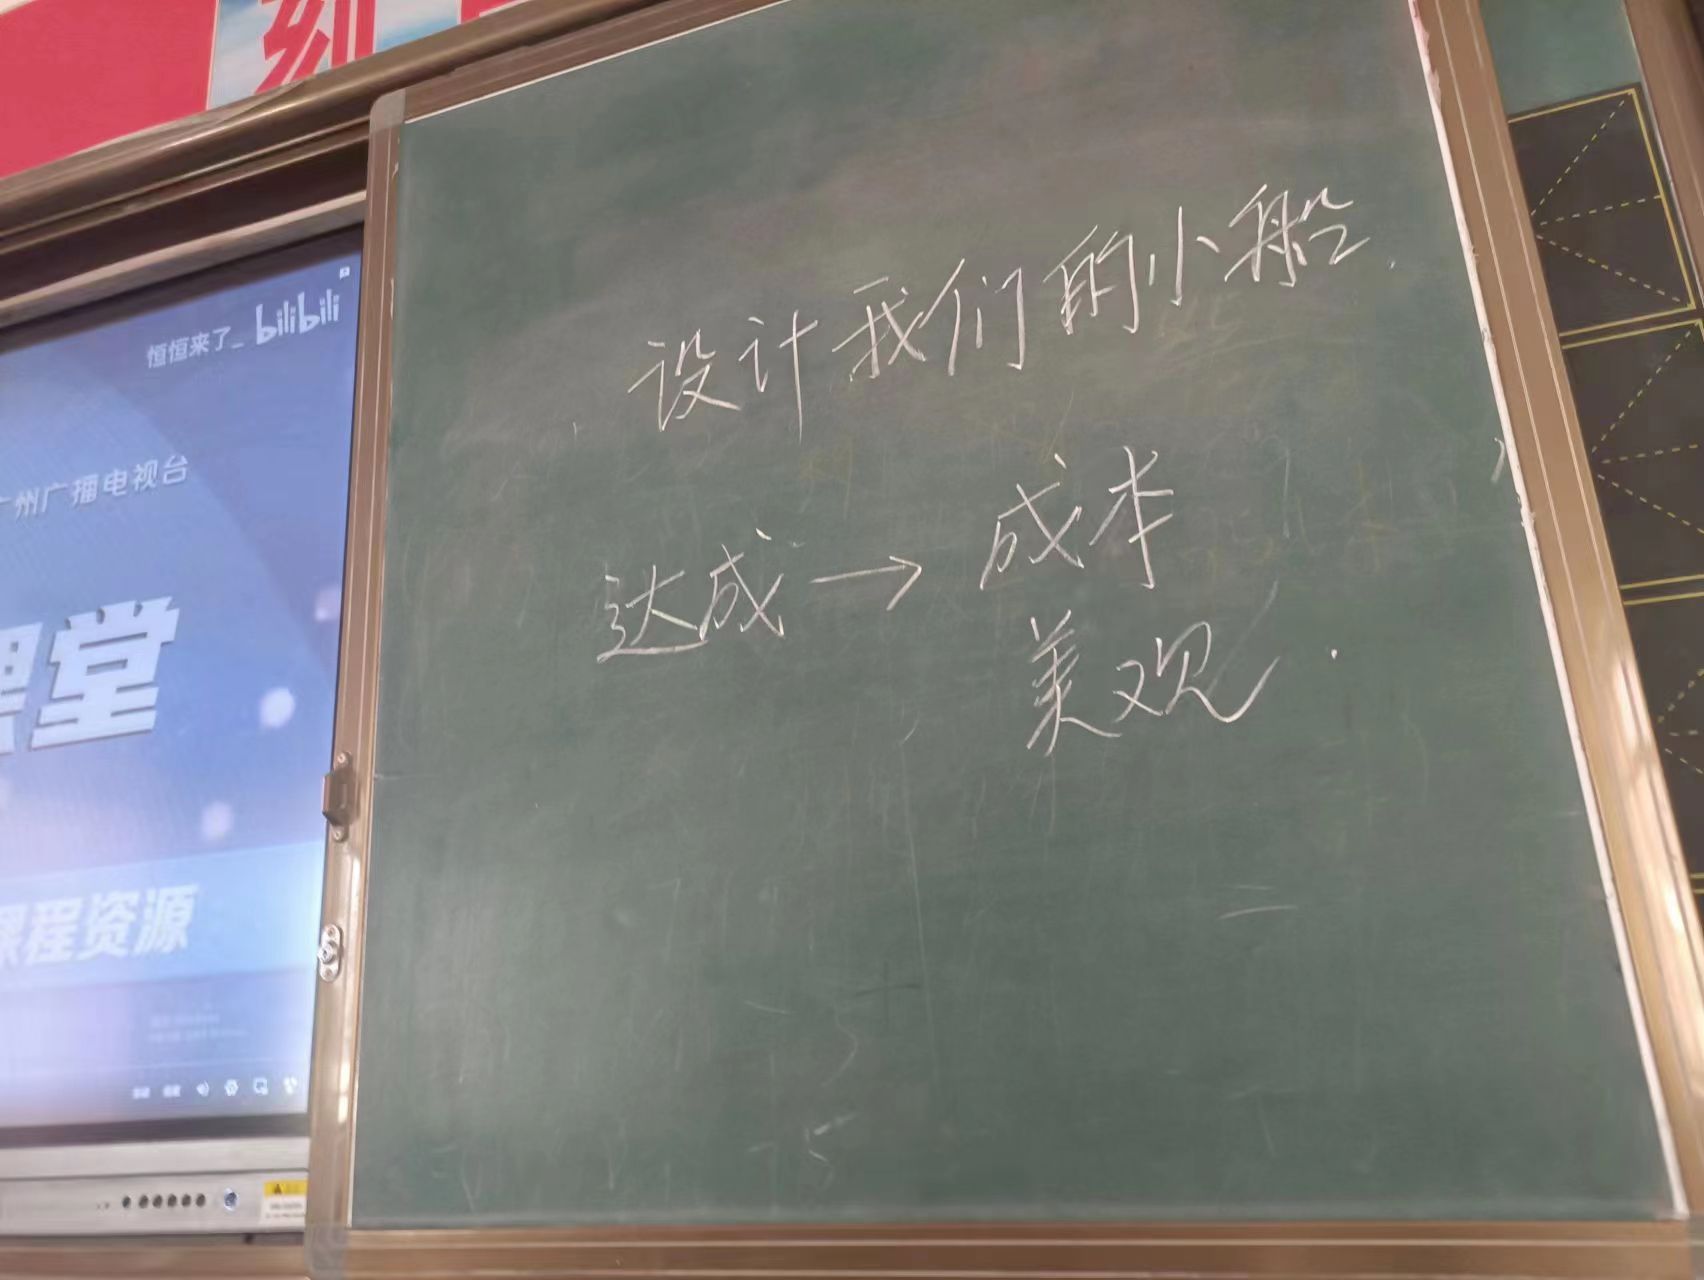 刻
恒恒来了_ bilibili
广州广播电视台
课堂
课程资源
设计我们的小船
达成→成本
美观